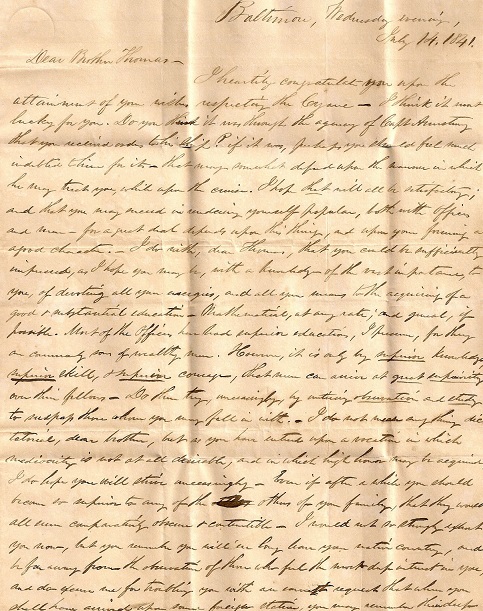 Baltimore, Wednesday evening,
July 14. 1841.
Dear Brother Thomas —
I heartily congratulate you upon the
attainment of your wishes respecting the Cyane — I think it most
lucky for you. Do you think it was through the agency of Capt. Armstrong
that you received orders to this ship? if it was, perhaps you should feel much
indebted to him for it — that may somewhat depend upon the manner in which
he may treat you while upon the cruise. I hope that will all be satisfactory;
and that you may succeed in rendering yourself popular, both with officers
and men — for a great deal depends upon this thing, and upon your forming a
good character. — I do wish, dear Thomas, that you could be sufficiently
impressed, as I hope you may be, with a knowledge of the vast importance, to
you, of devoting all your energies, and all your means to the acquiring of a
good & substantial education — Mathematical, at any rate; and general, if
possible. Most of the officers have had superior educations, I presume, for they
are commonly sons of wealthy men. However, it is only by superior knowledge
superior skill, & superior courage, that men can arrive at great superiority
over their fellows — Do then try, unceasingly, by untiring observation and study
to surpass those whom you may fall in with. — I do not mean any thing dic-
tatorial, dear brother, but as you have entered upon a vocation in which
mediocrity is not at all desirable, and in which high honor may be acquired
I do hope you will strive unceasingly — Even if after a while you should
become so superior to any of the others of your family, that they would
all seem comparatively obscure & contemptible — I would not so strongly exhort
you now, but you remember you will ere long leave your native country, and
be far away from the observation of those who feel the most deep interest in you,
and do excuse me for troubling you with an earnest request that when you
shall have arrived upon some foreign station, you may